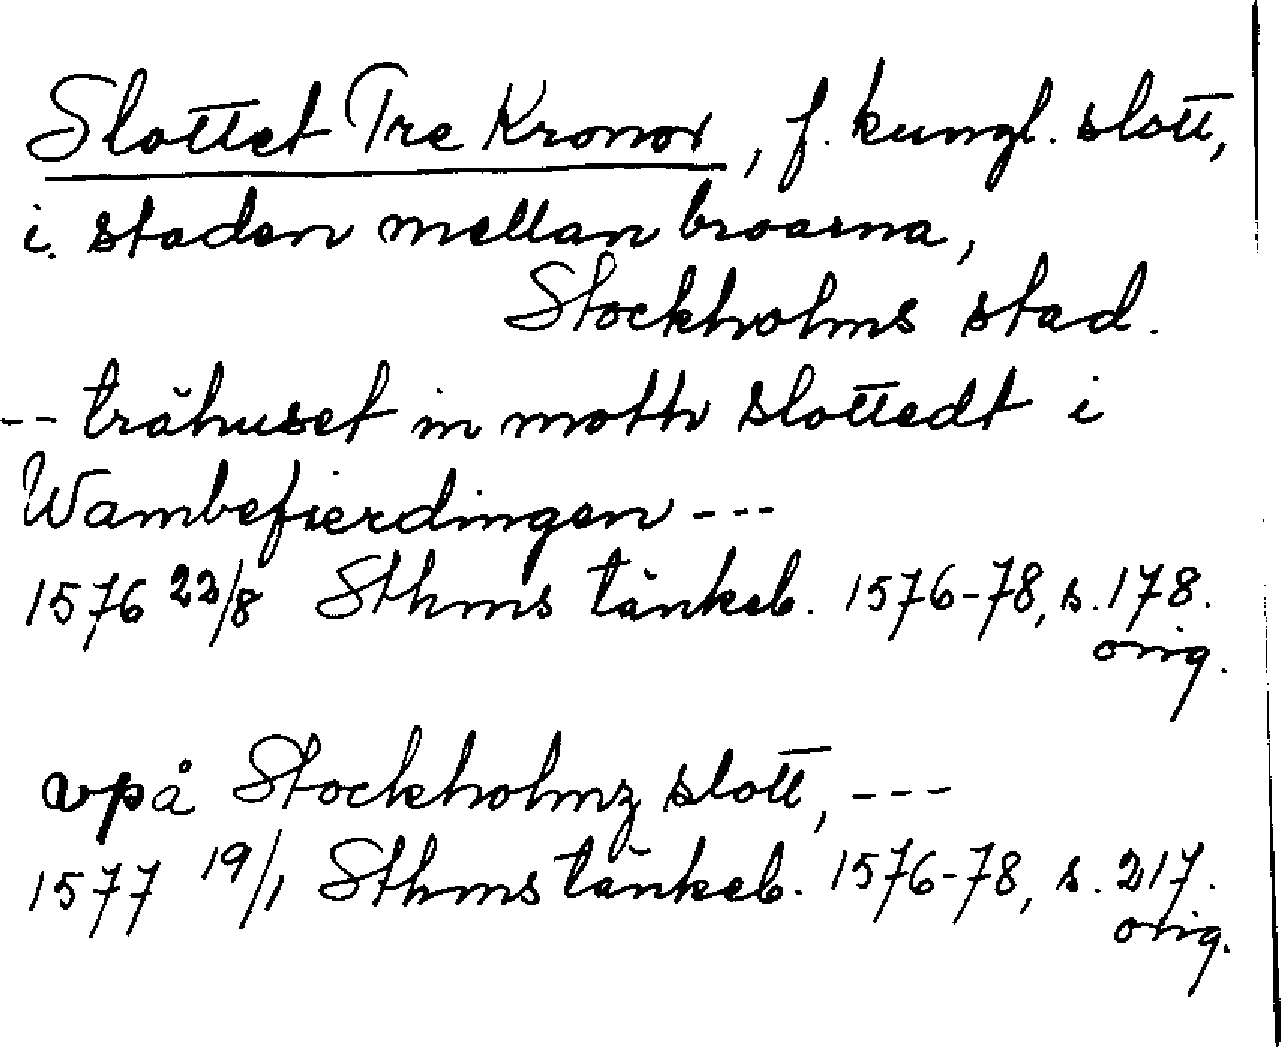 Slottet Tre Kronor, f. kungl. slott,
i. staden mellan broarna,
Stockholms stad.
-- trähuset in moth slottedt i
Wambefierdingen ---
1576 23/8 Sthms tänkeb. 1576-78, s. 178.
orig.
vpå Stockholmz slott, ---
1577 19/1 Sthms tänkeb. 1576-78, s. 217.
orig.